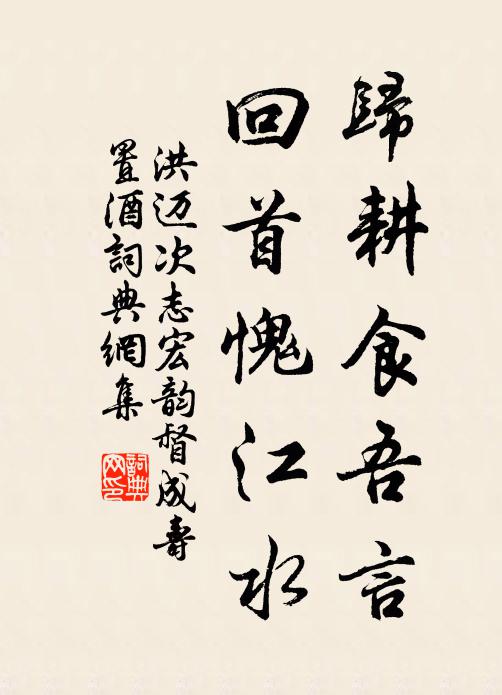 歸耕食吾言
回首愧江水
洪迈次志宏韵督成壽
置酒詞典網集
詞典
网印